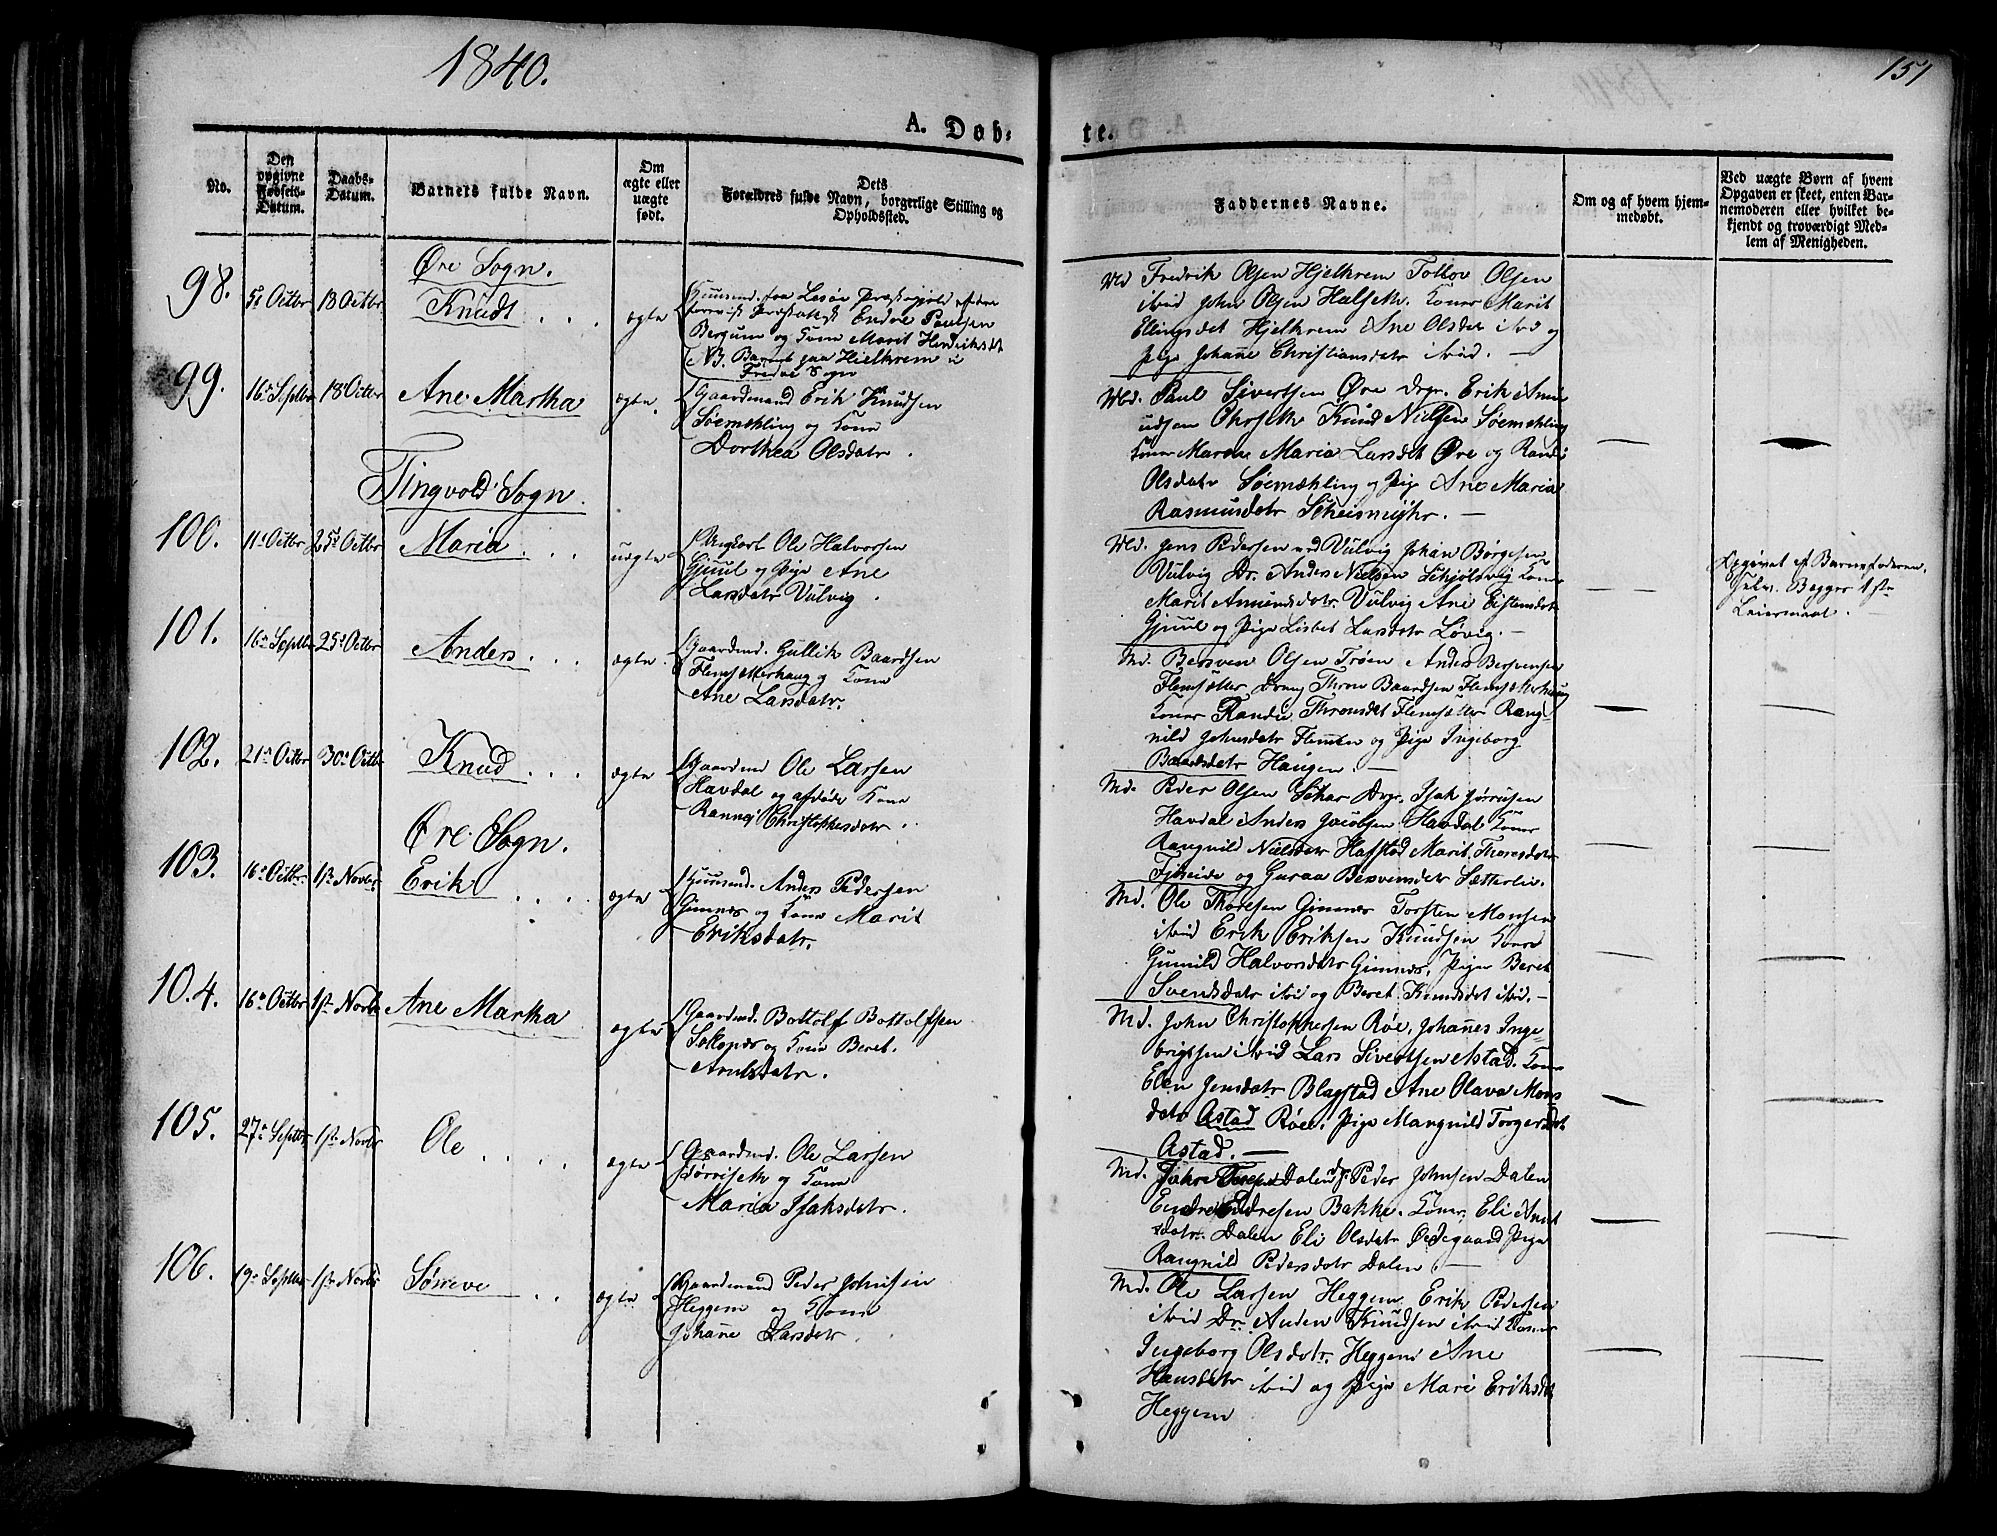 1840.
151
A. Døb-
te.
No.
Den opgivne Fødsels-Datum.
Daabs-Datum.
Barnets fulde Navn.
Om ægte eller uægte født.
Forældres fulde Navn, borgerlige Stilling og Dets Opholdsted.
Faddernes Navne.
Om og af hvem hjem-
medøbt.
Ved uægte Børn af hvem
Opgaven er skeet, enten Bar-
nemoderen eller hvilket be-
kjendt og troværdigt Med-
lem af Menigheden.
Øre Sogn.
98. 5t Octbr 18 Octbr Knudt ægte
Endre Paulsen
Bergum og Kone Marit Henriksdt
NB. Barnet paa Hjelkrem i
Fredøe Sogn
Md Fredrik Olsen Hjelkrem Tollov Olsen
ibid John Olsen Halseth. Koner Marit
Ellingsdet Hjelkrem Ane Olsdatr ibid og
Pige Johane Christiansdatr ibid. —
99. 16n Septbr 18 Octbr Ane Martha ægte
Gaardmand Erik Knudsen
Søemæhling og Kone
Dorthea Olsdatr.
Md. Paul Sivertsen Øre Drgr. Erik Amu
udsen Knud Nielsen Søemæhling
Koner Maren Maria Larsdet Øre og Randi
Olsdatr Søemæhling og Pige Ane Maria
Rasmusdatr
Tingvold Sogn.
100. 11n Octbr 25d Octbr Maria uægte
Ungkarl Ole Halvorsen
Gjuul og Pige Ane
Larsdatr Vulvig.
Md. Jens Pedersen Vulvig Johan Børgesen
Vulvig Dr. Anders Nielsen Koner
Marit Amundsdatr. Vulvig Ane Eistensdatr
Gjuul og Pige Lisbet Larsdatr Løvig. —
Opgivet af Barnefaderen
Begges 1ste
Leiermaal.
101. 16n Septbr 25d Octbr Anders ægte
Gaardmd. Gullik Baardsen
Flemsetterhaug og Kone
Ane Larsdatr.
Md. Bersven Olsen Trøen Anders Bersvensen
Flemsetter Dreng Thron Baardsen Flemsetterhaug
Koner Randie Thronsdet Flemsetter Rang-
nild Johnsdatr Flemmen og Pige Ingeborg
Baardsdatr Haugen. —
102. 21n Octbr 30n Octbr Knud ægte
Gaardmd Ole Larsen
Havdal og afdøde Kone
Rannei Christophersdatr.
Md. Peder Olsen Skar Drgr. Isak Jørrisen
Havdal Anders Jacobsen Havdal Koner
Rangnild Nielsdatr Hafstad Marit Thoresdatr
Fjseide og Guraa Besvensdatr Sætterlie.
Øre Sogn.
103. 16n Octbr 1st Novbr Erik ægte
Huusmd. Anders Pedersen
Gimnes og Kone Marit
Eriksdatr.
Md. Ole Thoresen Gimnes Torsten Monsen
ibid Erik Eriksen Knudsen Kone
Gunild Halvorsdatr Gimnes, Pige Beret
Svendsdatr ibid og Beret Knudsdet ibid. —
10.4. 16n Octbr 1st Novbr Ane Martha ægte
Gaardmd. Bottolf Bottolfsen
og Kone Beret
Arntsdatr.
Md. John Christophersen Røe, Johanes Inge-
brigtsen ibid Lars Sivertsen Astad. Koner
Elen Jensdatr Blagstad Ane Olava Mons
datr Astad Røe. Pige Mangnild Torgersdet.
Astad. —
105. 27n Septbr 1st Novbr Ole ægte
Gaardmd. Ole Larsen
Jørriseth og Kone
Maria Isaksdatr.
Md. Dalen Peder Johnsen Dalen
Endre Endresen Bakke. Koner. Eli Arnt
sdatr. Dalen Eli Olsdatr Ødegaard Pige
Rangnild Pedersdatr Dalen. —
106. 19n Septbr 1st Novbr Sørreve ægte
Gaardmand Peder Johnsen
Heggem og Kone
Johane Larsdatr.
Md. Ole Larsen Heggem Erik Pedersen
ibid Dr. Anden Knudsen ibid Koner
Ingeborg Olsdatr. Heggem Ane
Hansdatr ibid og Pige Mari Eriksdt
Heggem